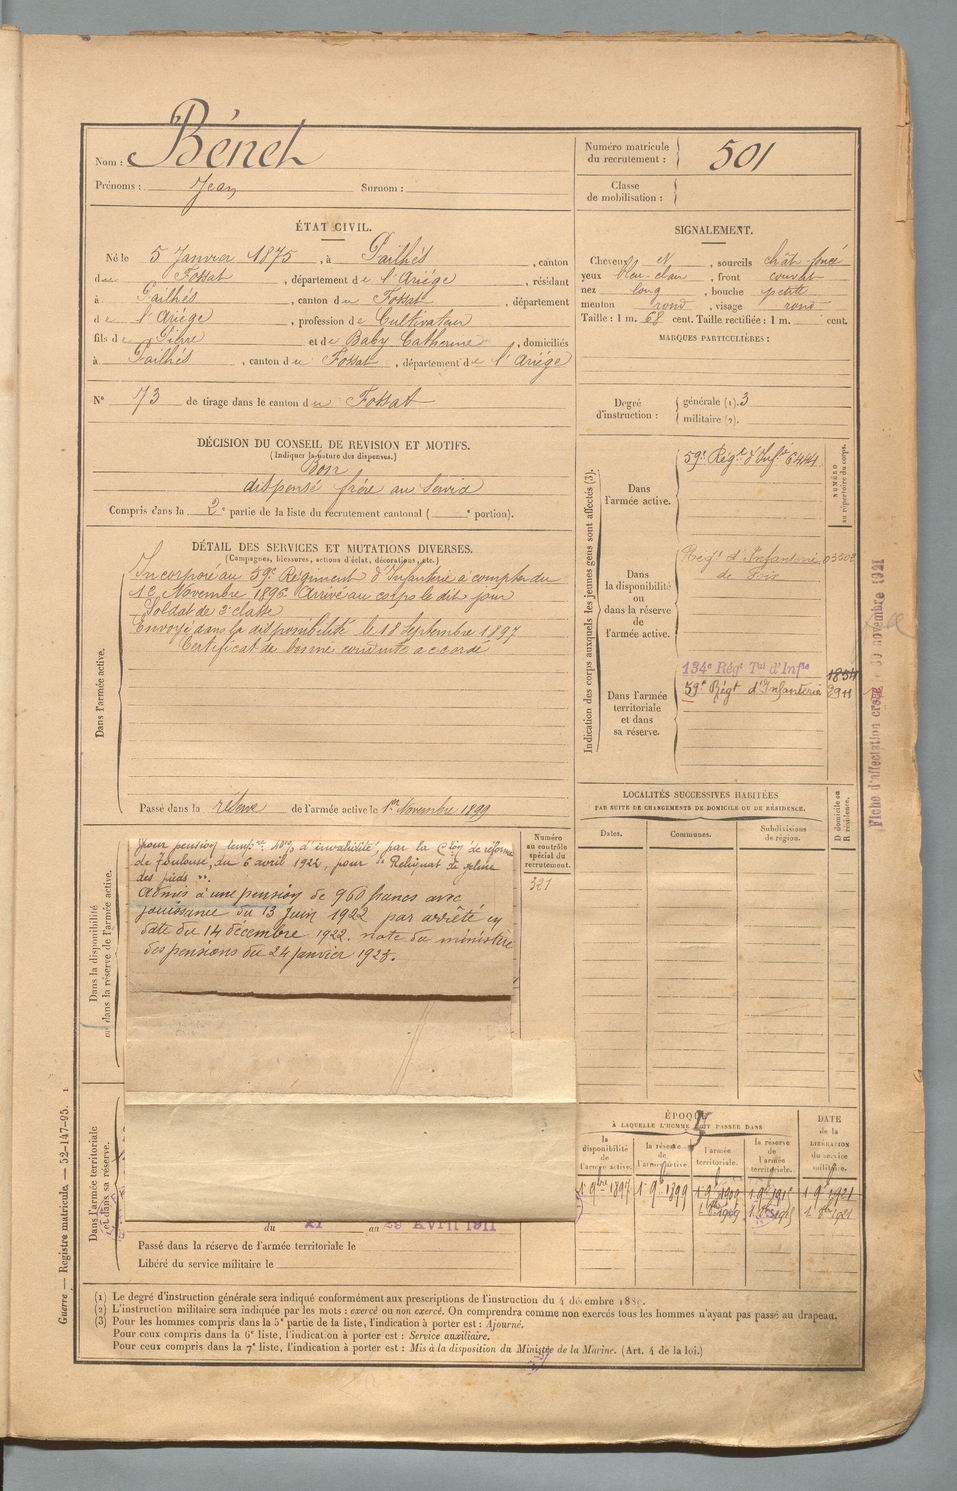 Nom : Bénet
Prénoms : Jean Surnom :
Numéro matricule
du recrutement : 501
Classe
de mobilisation :
ÉTAT CIVIL.
Né le 5 Janvier 1875, à Pailhés, canton
de Fossat, département de l'Ariége, résidant
à Pailhés, canton du Fossat, département
de l'Ariége, profession de Cultivateur
fils de Pierre et de Baby Catherine, domiciliés
à Pailhés, canton du Fossat, département de l'Ariége
N° 73 de tirage dans le canton du Fossat
SIGNALEMENT.
Cheveux N, sourcils chât foncé
yeux bleu-clair, front couvert
nez long, bouche petite
menton rond, visage rond
Taille : 1 m. 68 cent. Taille rectifiée : 1 m. cent.
MARQUES PARTICULIÈRES :
Degré
d'instruction :
générale (1). 3
militaire (2).
DÉCISION DU CONSEIL DE REVISION ET MOTIFS.
(Indiquer la nature des dispenses.)
Bon
dispensé frère au service
Compris dans la 2e partie de la liste du recrutement cantonal ( e portion).
DÉTAIL DES SERVICES ET MUTATIONS DIVERSES.
(Campagnes, blessures, actions d'éclat, décorations, etc.)
Dans l'armée active.
Incorporé au 59e Régiment d'Infanterie à compter du
16 Novembre 1896. Arrivé au corps le dit jour
Soldat de 2e classe
Envoyé dans la disponibilité le 18 Septembre 1897
Certificat de bonne conduite accordé
Passé dans la réserve de l'armée active le 1er Novembre 1899
Indication des corps auxquels les jeunes gens sont affectés (3).
NUMÉRO
au répertoire du corps.
Dans
l'armée active.
59e Régt d'Infie 6414
Dans
la disponibilité
ou
dans la réserve
de
l'armée active.
Regt d'Infanterie 03302
de Foix
Dans l'armée
territoriale
et dans
sa réserve.
134e Régt Tal d'Infie 1854
59e Régt d'Infanterie 2911
Fiche d'affectation créée 30 novembre 1921
LOCALITÉS SUCCESSIVES HABITÉES
PAR SUITE DE CHANGEMENTS DE DOMICILE OU DE RÉSIDENCE.
Dates. Communes. Subdivisions
de région.
D domicile ou
R résidence.
Dans la disponibilité
ou dans la réserve de l'armée active.
Numéro
au contrôle
spécial du
recrutement.
321
pour pension tempre d'invalidité, par la Cion de réforme
de Toulouse, du 6 avril 1922, pour "Reliquat de gelure
des pieds".
Admis à une pension de 960 francs avec
jouissance du 13 juin 1922 par arrêté en
date du 14 décembre 1922. note du ministère
des pensions du 24 janvier 1923.
Dans l'armée territoriale
et dans sa réserve.
du XI au 29 Avril 1911
Passé dans la réserve de l'armée territoriale le
Libéré du service militaire le
ÉPOQUE
À LAQUELLE L'HOMME DOIT PASSER DANS
la
disponibilité
de
l'armée active.
la réserve
de
l'armée active
l'armée
territoriale.
la réserve
de
l'armée
territoriale.
DATE
de la
LIBÉRATION
du service
militaire.
1 9bre 1897 1 9b 1899 1 9b 1909 1 9b 1915 1 9b 1921
1 8b 1909 1 8b 1915 1 8bre 1921
(1) Le degré d'instruction générale sera indiqué conformément aux prescriptions de l'instruction du 4 décembre 1889.
(2) L'instruction militaire sera indiquée par les mots : exercé ou non exercé. On comprendra comme non exercés tous les hommes n'ayant pas passé au drapeau.
(3) Pour les hommes compris dans la 5e partie de la liste, l'indication à porter est : Ajourné.
Pour ceux compris dans la 6e liste, l'indication à porter est : Service auxiliaire.
Pour ceux compris dans la 7e liste, l'indication à porter est : Mis à la disposition du Ministre de la Marine. (Art. 4 de la loi.)
Guerre — Registre matricule. — 52-147-95. 1